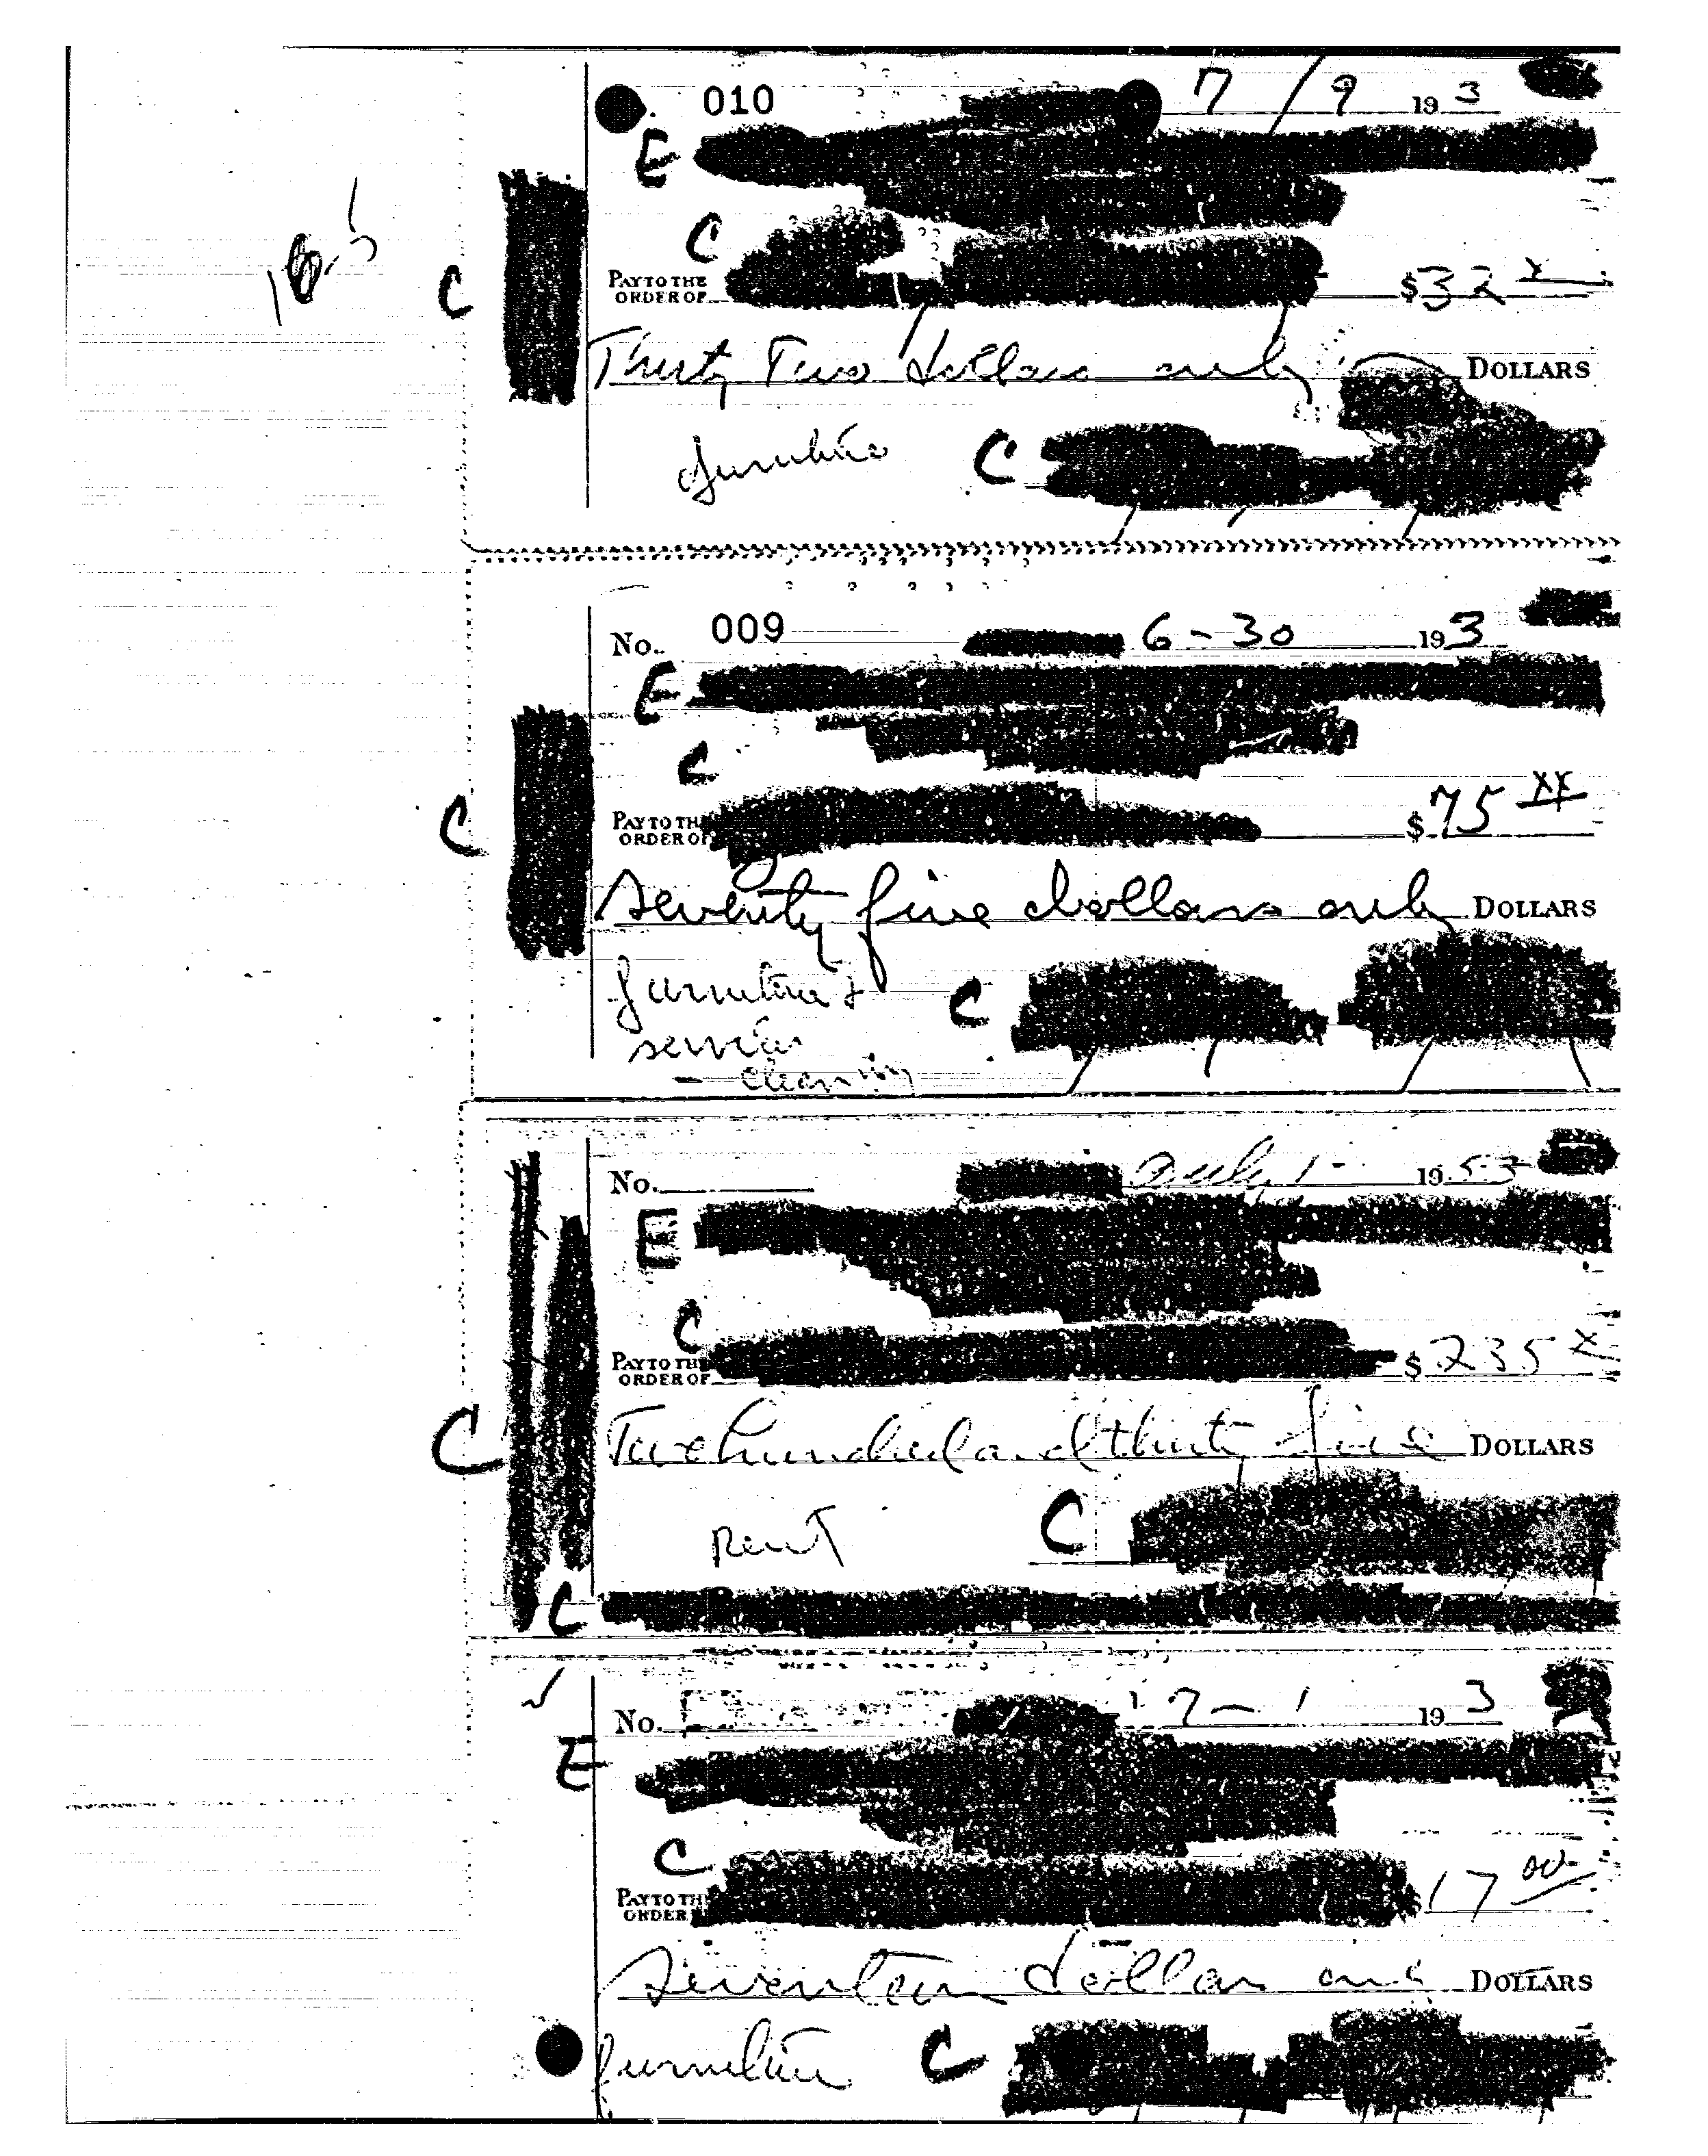 010 7/9 19 3
E
C
C
PAY TO THE
ORDER OF $32 x
Thirty Two dollars only DOLLARS
furniture C
No. 009 6-30 19 3
E
C
C
PAY TO THE
ORDER OF $75 xx
Seventy five dollars only DOLLARS
furniture & C
service
- cleaning
No. July 1- 19 53
E
C
PAY TO THE
ORDER OF $235 x
C
Two hundred and thirty five DOLLARS
rent C
C
No. 7-1 19 3
E
C
PAY TO TH
ORDER $17 00
Seventeen dollars only DOLLARS
furniture C